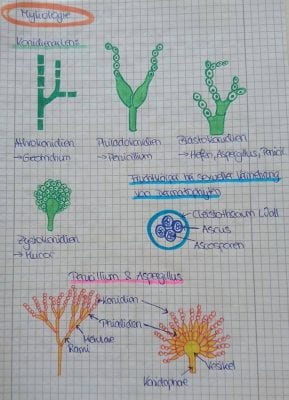 Mykologie
Konidienarten:
Arthrokonidien
→ Geotrichum
Phialokonidien
→ Penicillium
Blastokonidien
→ Hefen, Aspergillus, Penicil
Fruchtkörper bei sexueller Vermehrung
von Dermatophyten
Cleistothecium Wall
Ascus
Ascosporen
→ Mucor
Penicillium & Aspergillus
Konidien
Phialiden
Metulae
Rami
Vesikel
Konidiophore